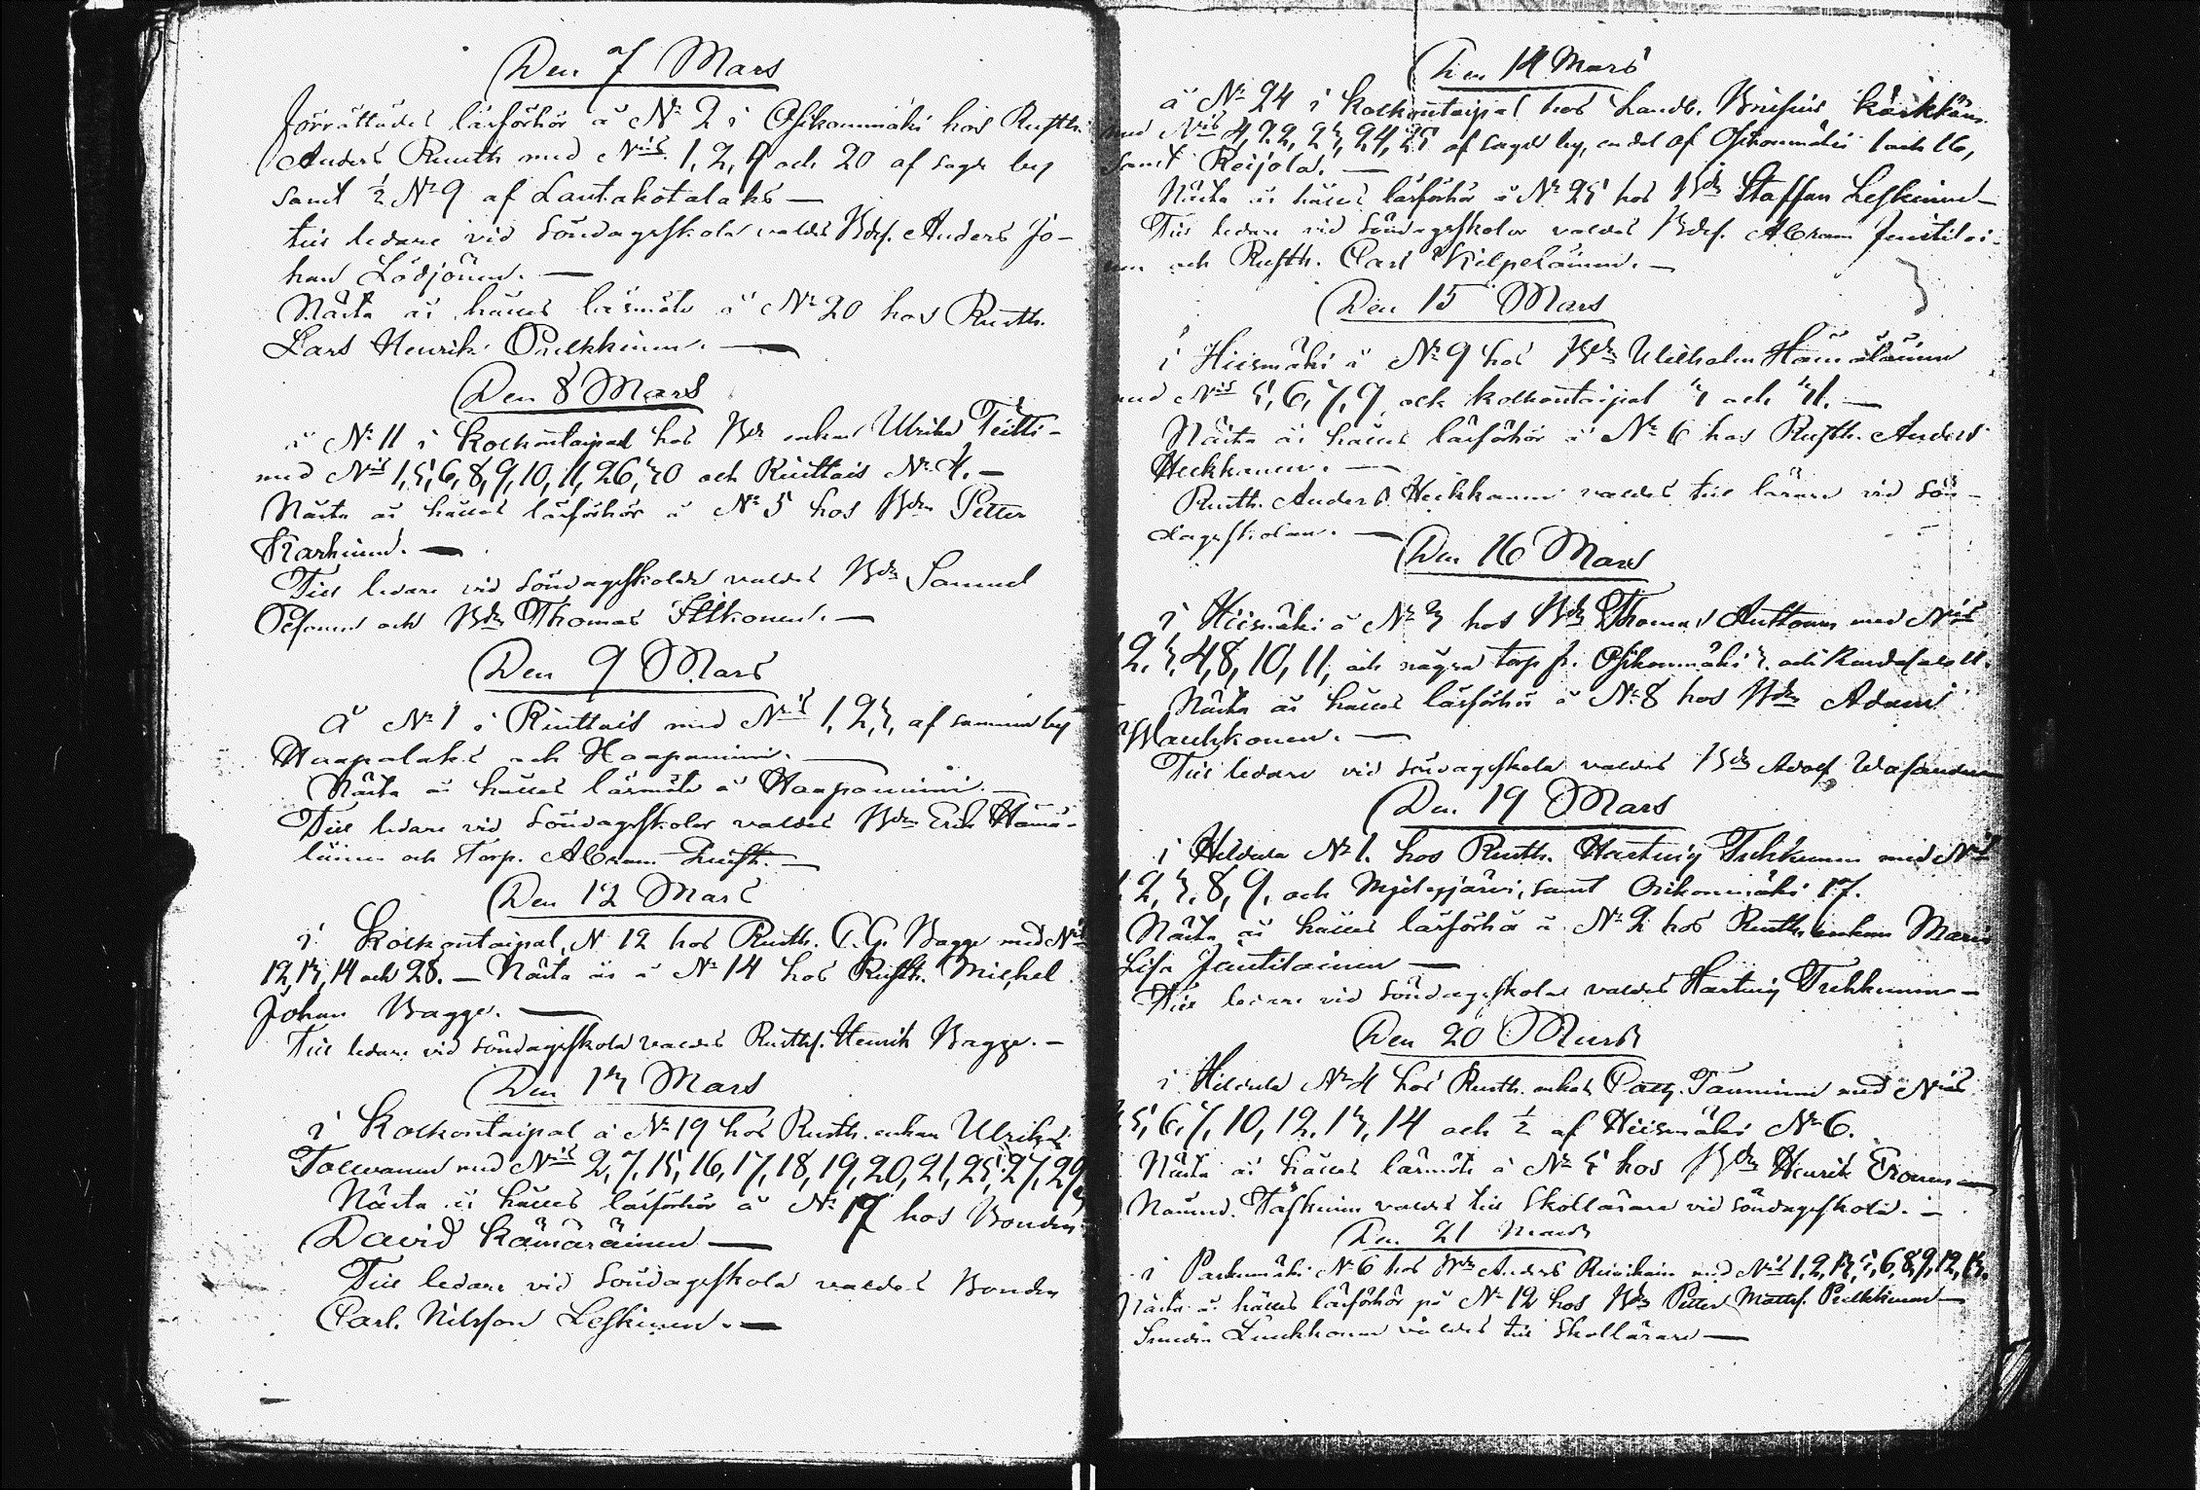 Den 7 Mars
Förrättades läsförhör å No 2 i Osikonmäki hos Rusth.
Anders Ruuth med Nris 1, 2, 4 och 20 af sagde by
samt ½ No 9 af Lautakotalaks —
till ledare vid söndagsskola valdes Bdes. Anders Jo-
han
Nästa år hålles läsmöte å No 20 hos Rusth.
Lars Henrik Pulkkinen. —
Den 8 Mars
å No 11 i Kolkontaipal hos Bde enkan Ulrika Teitti-
med Nris 1, 5, 6, 8, 9, 10, 11, 26, 30 och Ruuttais No 4. —
Nästa år hålles läsförhör å No 5 hos Bden Petter
Karhinen. —
Till ledare vid söndagsskolor valdes Bden Samuel
och Bden Thomas Ikonen. —
Den 9 Mars
å No 1 i Ruuttais med Nris 1, 2, 3, af samma by
Haapalaks och Haapaniemi. —
Nästa år hålles läsmöte å Haapaniemi. —
Till ledare vid söndagsskolor valdes Bden Erik Hämä-
läinen och Torp. Abram —
Den 12 Mars
i Kolkontaipal, N 12 hos Rusth. C. G. Bagge med Nris
12, 13, 14 och 28. — Nästa år å No 14 hos Rusth. Michel
Johan Bagge. —
Till ledare vid söndagsskola valdes Rusths. Henrik Bagge. —
Den 13 Mars
i Kolkontaipal å No 19 hos Rusth. enkan Ulrika
Tolvanen med Nris 2, 7, 15, 16, 17, 18, 19, 20, 21, 25, 27, 29
Nästa år hålles läsförhör å No 17 hos Bonden
David Kämäräinen —
Till ledare vid söndagsskola valdes Bonden
Carl Nilsson Leskinen. —
Den 14 Mars
å No 24 i Kolkontaipal hos Landb. Brusius Kärkkäin.
med Nris 4, 22, 23, 24, 25 af sagde by, en del af Osikonmäki 1 och 16,
samt Reijola. —
Nästa år hålles läsförhör å No 25 hos Bden Staffan Leskinen —
Till ledare vid söndagsskolor valdes Bdes. Abram Jentilai-
nen och Rusth. Carl Kilpeläinen. —
Den 15 Mars
i Hiismäki å No 9 hos Bden Wilhelm Hämäläinen
med Nris 5, 6, 7, 9, och Kolkontaipal 3 och 31. —
Nästa år hålles läsförhör å No 6 hos Rusth. Anders
Heikkanen. —
Rusth. Anders Heikkanen valdes till lärare vid sön-
dagsskolan. —
Den 16 Mars
i Hiismäki å No 3 hos Bden Thomas Auttonen med Nris
2, 3, 4, 8, 10, 11, och några torp fr. Osikonmäki 3. och
Nästa år hålles läsförhör å No 8 hos Bden Adam
Wauhkonen. —
Till ledare vid söndagsskola valdes Bden Adolf Wasander
Den 19 Mars
i Hildula No 1. hos Rusth. Hartwig Tuhkunen med Nris
1, 2, 3, 8, 9, och Myllyjärvi, samt Osikonmäki 17.
Nästa år hålles läsförhör å No 2 hos Rusth. enkan Maria
Lisa Jäntilainen —
Till ledare vid söndagsskolan valdes Hartwig Tuhkunen —
Den 20 Mars
i Hildula No 4 hos Rusth. enkan Tanninen med Nris
5, 6, 7, 10, 12, 13, 14 och ½ af Hiismäki No 6.
Nästa år hålles läsmöte å No 5 hos Bden Henrik Eronen —
valdes till skollärare vid söndagsskola. —
Den 21 Mars
i Parkumäki No 6 hos Bden Anders med Nris 1, 2, 3, 5, 6, 8, 9, 12, 13.
Nästa år hålles läsförhör på No 12 hos Bden Petter Matts. Pulkkinen —
valdes till skollärare —